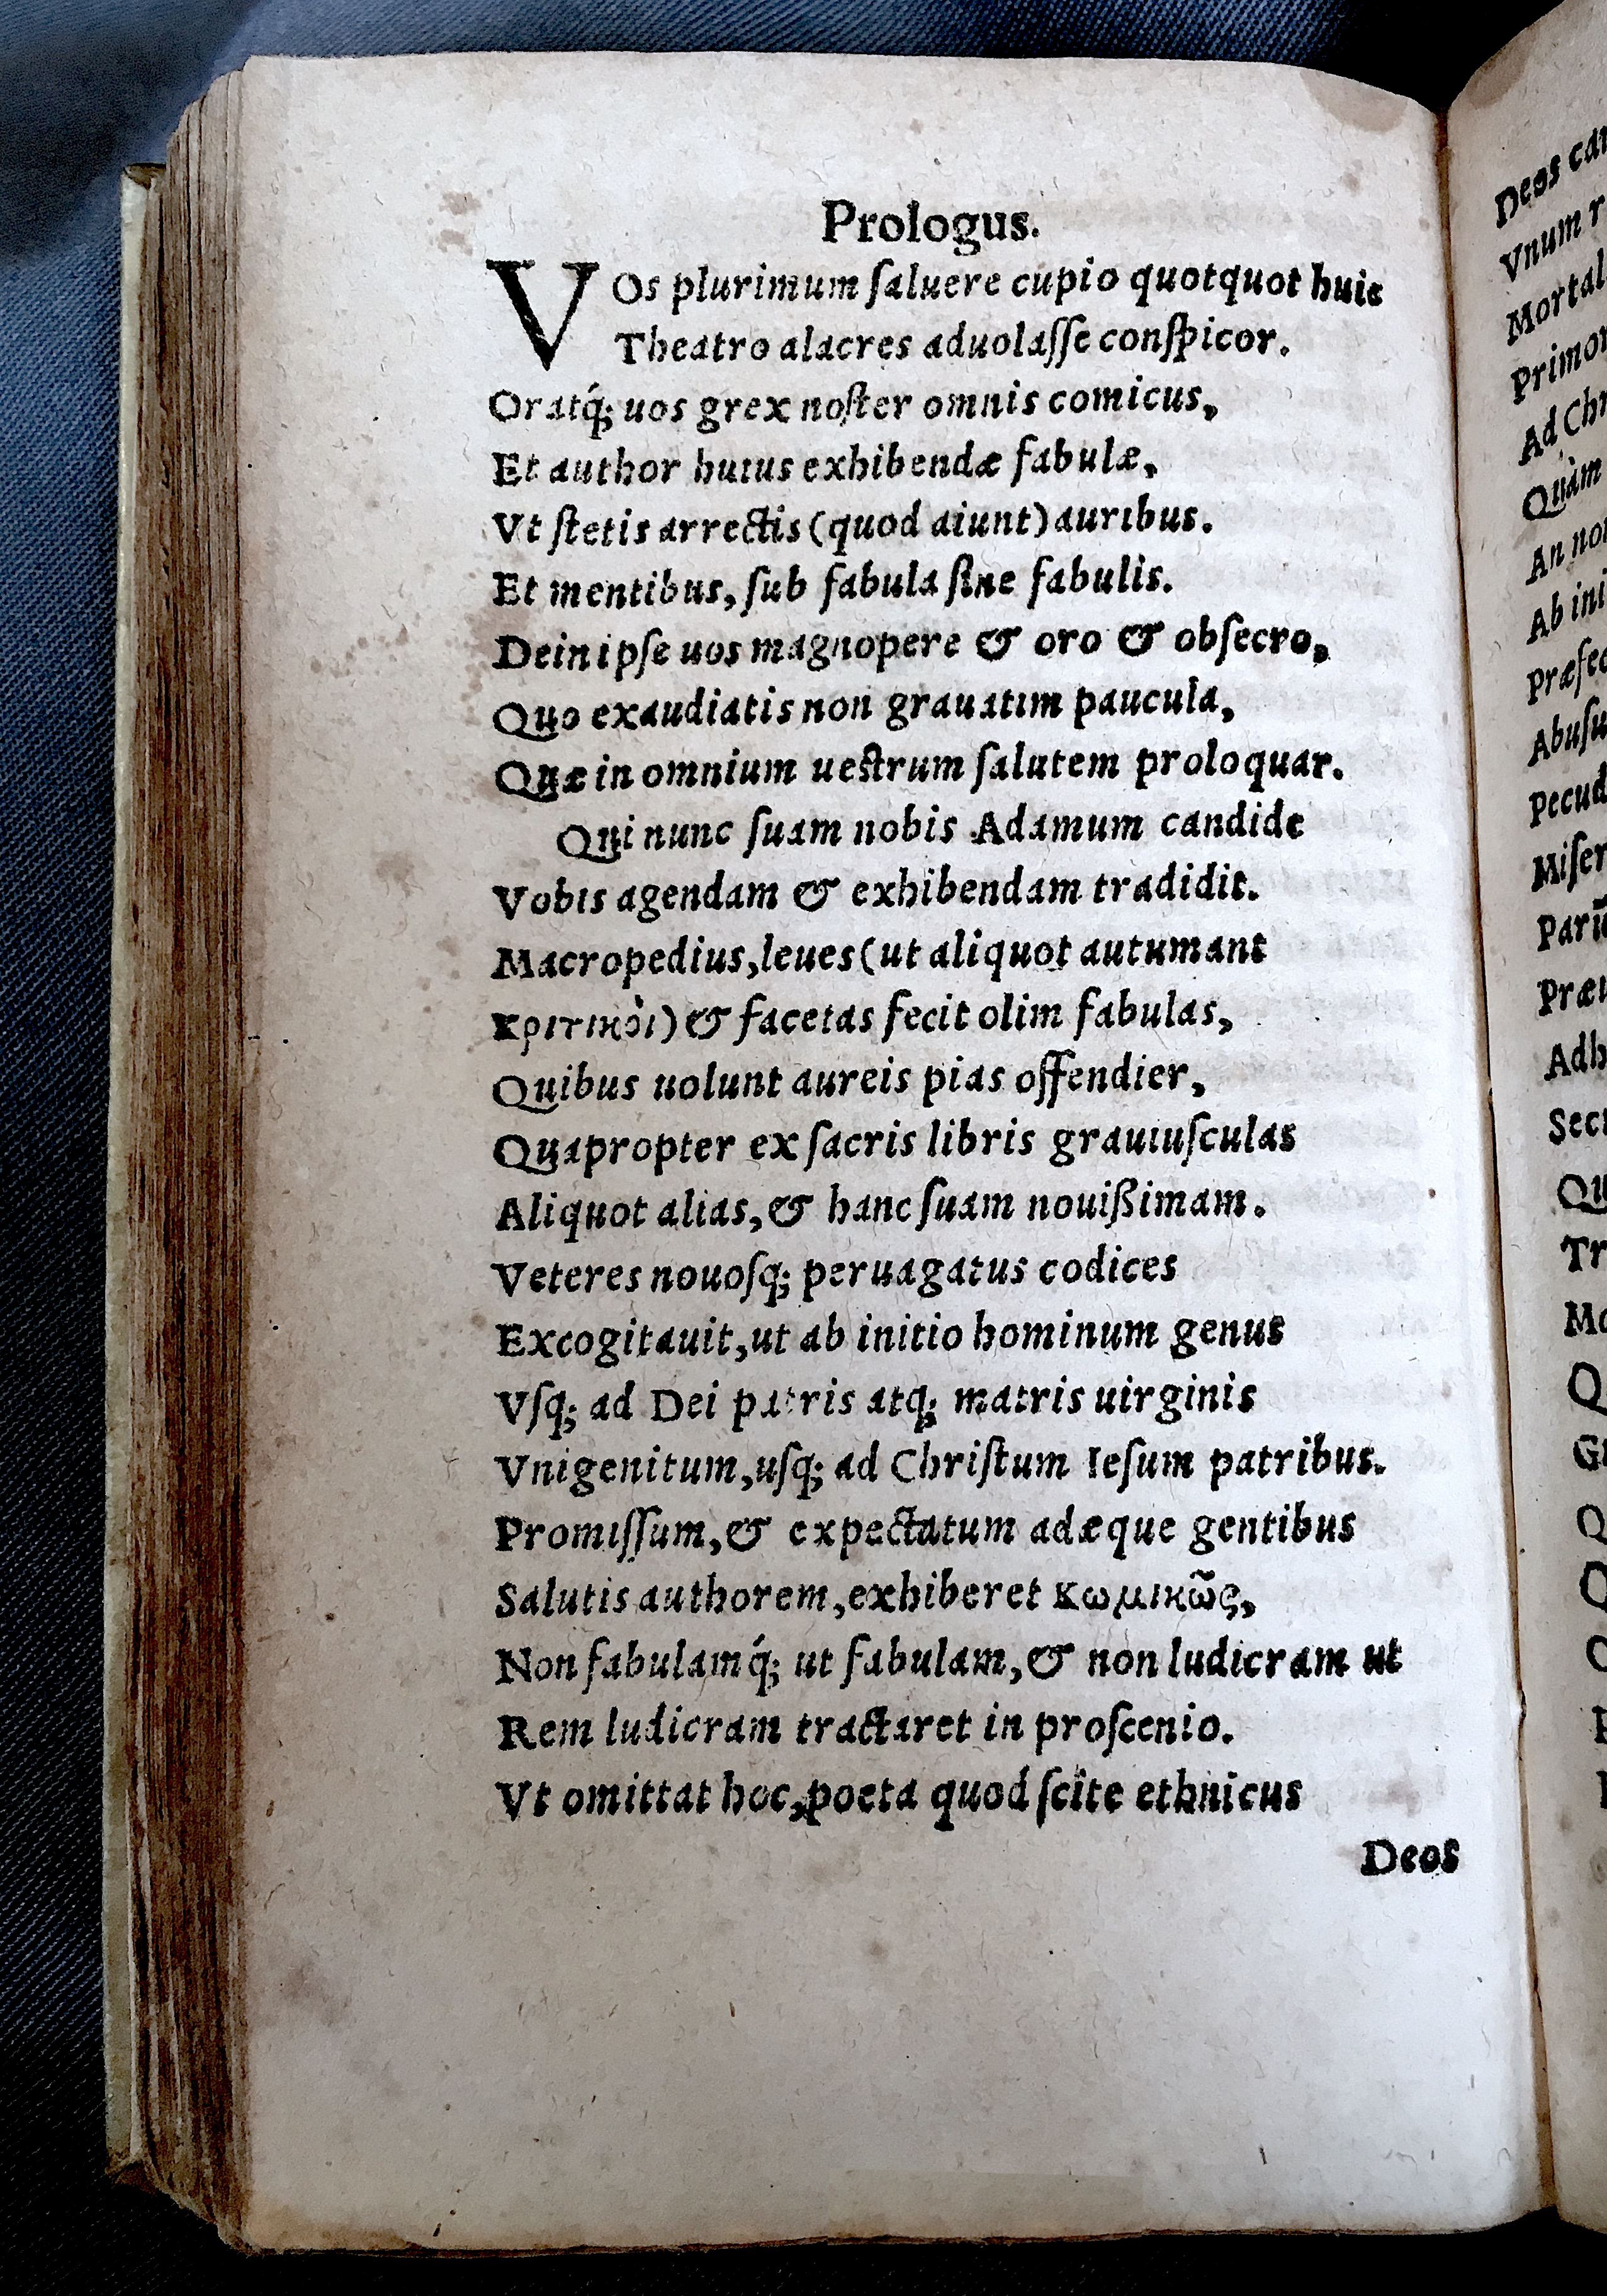 Prologus.
VOs plurimum ſaluere cupio quotquot huic
Theatro alacres aduolaſſe conſpicor.
Oratq́; uos grex noſter omnis comicus,
Et author huius exhibendæ fabulæ,
Vt ſtetis arrectis (quod aiunt) auribus.
Et mentibus, ſub fabula ſine fabulis.
Dein ipſe uos magnopere & oro & obſecro,
Quo exaudiatis non grauatim paucula,
Quæ in omnium ueſtrum ſalutem proloquar.
Qui nunc ſuam nobis Adamum candide
Vobis agendam & exhibendam tradidit.
Macropedius, leues (ut aliquot autumant
κριτικὸι) & facetas fecit olim fabulas,
Quibus uolunt aureis pias offendier,
Quapropter ex ſacris libris grauiuſculas
Aliquot alias, & hanc ſuam nouißimam.
Veteres nouoſq; peruagatus codices
Excogitauit, ut ab initio hominum genus
Vſq; ad Dei patris atq; matris uirginis
Vnigenitum, uſq; ad Chriſtum Ieſum patribus.
Promiſſum, & expectatum adæque gentibus
Salutis authorem, exhiberet κωμικῶς,
Non fabulamq́; ut fabulam, & non ludicram ut
Rem ludicram tractaret in proſcenio.
Vt omittat hoc, poeta quod ſcite ethnicus
Deos
Deos
Vnum
Ad
Quàm
An
Ab